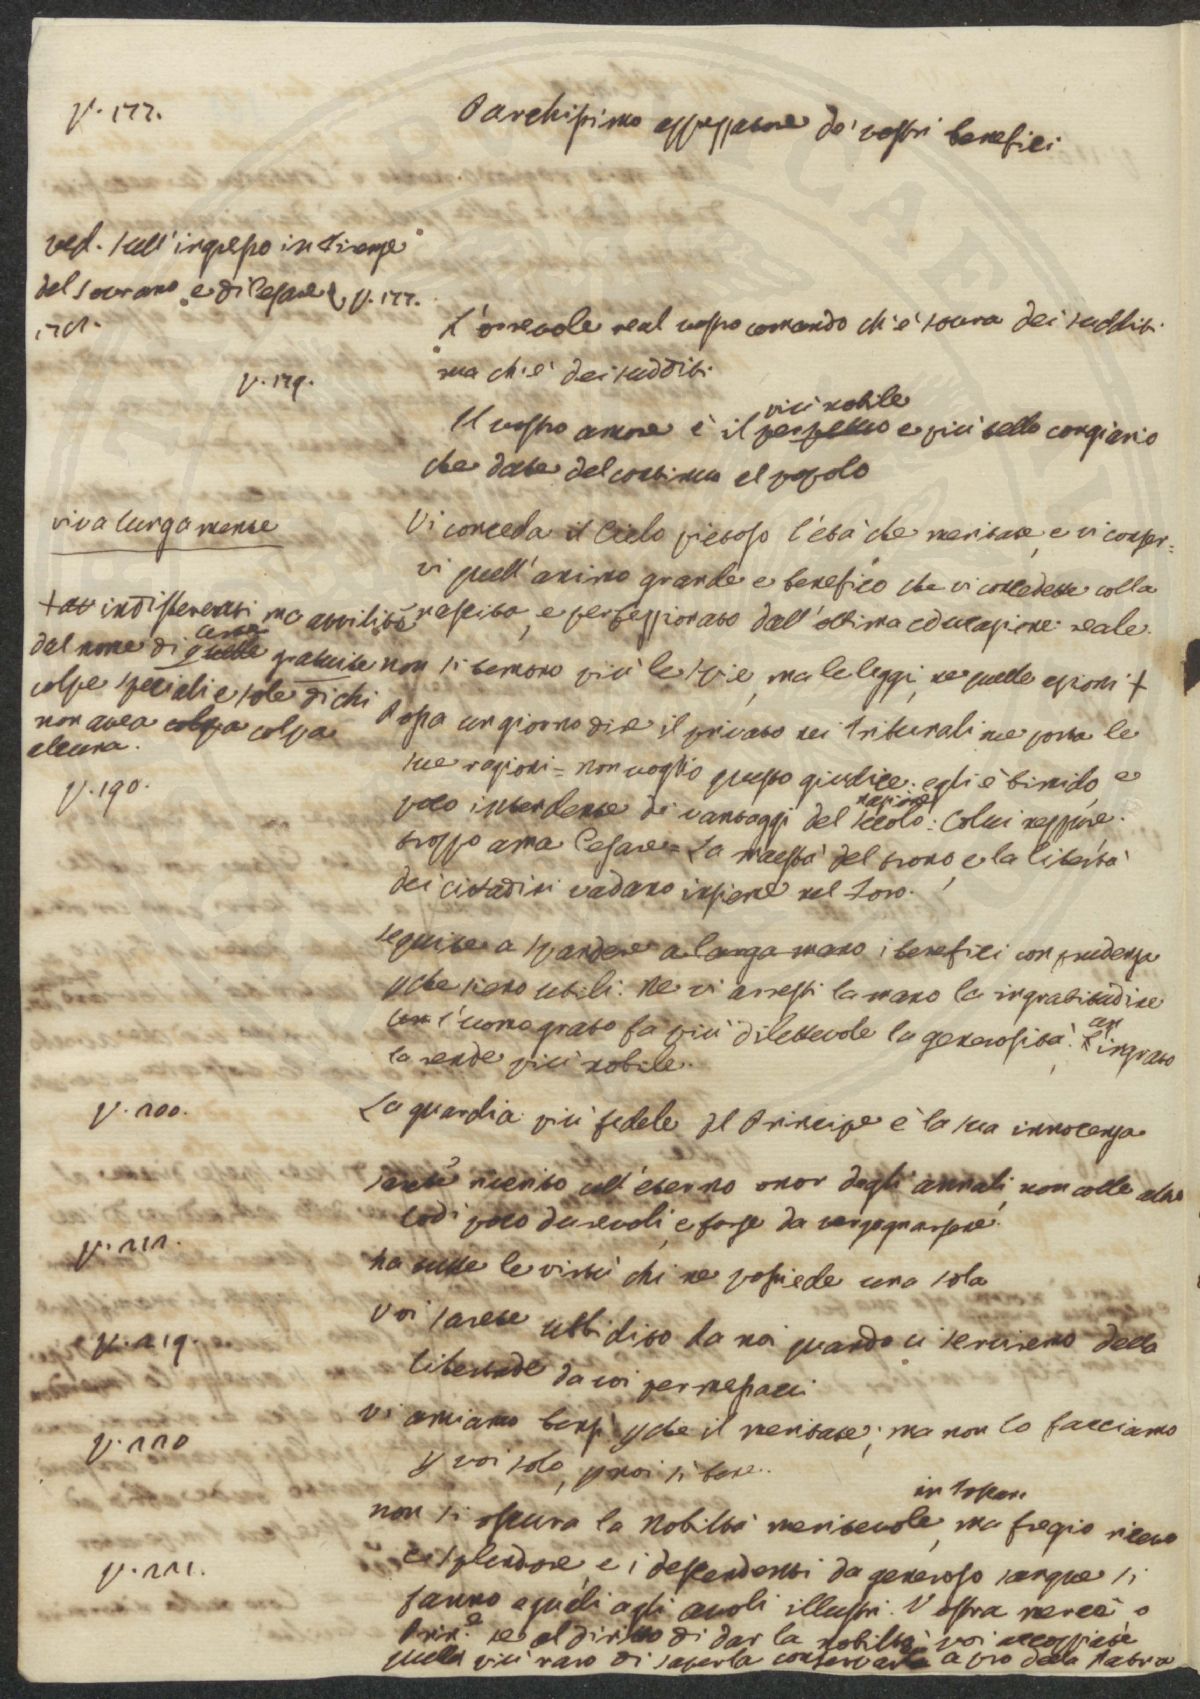 p. 177.
Parchissimo de' vostri benefici
ved. sull'ingresso in Firenze
del sovrano, e di Cesare p. 177.
1761.
L' real vostro comando ch'è sovra dei sudditi
ma ch'è dei sudditi
p. 179.
più nobile
Il vostro amore è il perpetuo e più bello congiario
che date del continuo al popolo
viva lungamente
Vi conceda il Cielo pietoso l'età che meritate, e vi conser=
vi quell'animo grande e benefico che vi concedette colla
nascita, e perfezionato dall'ottima educazione reale.
non si temono più le spie, ma le leggi, ne quelle azioni +
+ indifferenti ma avvilite
dal nome di quelle gratuite
colpe speciali e sole di chi
non avea colpa colpa
alcuna.
p. 190.
Possa un giorno dire il privato nei Tribunali ne porta le
sue ragioni = non voglio questo giudice: egli è timido, e
poco intendente di vantaggi del secolo: Colui neppure.
troppo ama Cesare = La maestà del trono, e la libertà
dei cittadini vadano insieme nel Foro.
seguitate a spandere a larga mano i benefici con prudenza
che sieno utili. Ne vi arresti la mano la ingratitudine
l'uomo grato fa più dilettevole la generosità: un ingrato
la rende più nobile.
p. 200.
La guardia più fedele del Principe è la sua innocenza
coll'eterno onor degli annali, non colle altre
lodi poco durevoli, e forse da vergognarsene.
p. 211.
ha tutte le virtù chi ne possiede una sola
p. 219.
Voi sarete ubbidito da noi quando ci serviremo della
libertade da voi permessaci
p. 220
Vi amiamo bensì che il meritate; ma non lo facciamo
p voi solo, p noi si bene.
in Toscan
non si oscura la Nobiltà meritevole, ma fregio riceve
e splendore, e i descendenti da generoso sangue si
p. 221.
fanno eguali agli avoli illustri. Vostra mercè o
Prin.e se al diritto di dar la nobiltà voi accoppiate
quella più raro di saperla conservarla a pro della Patria